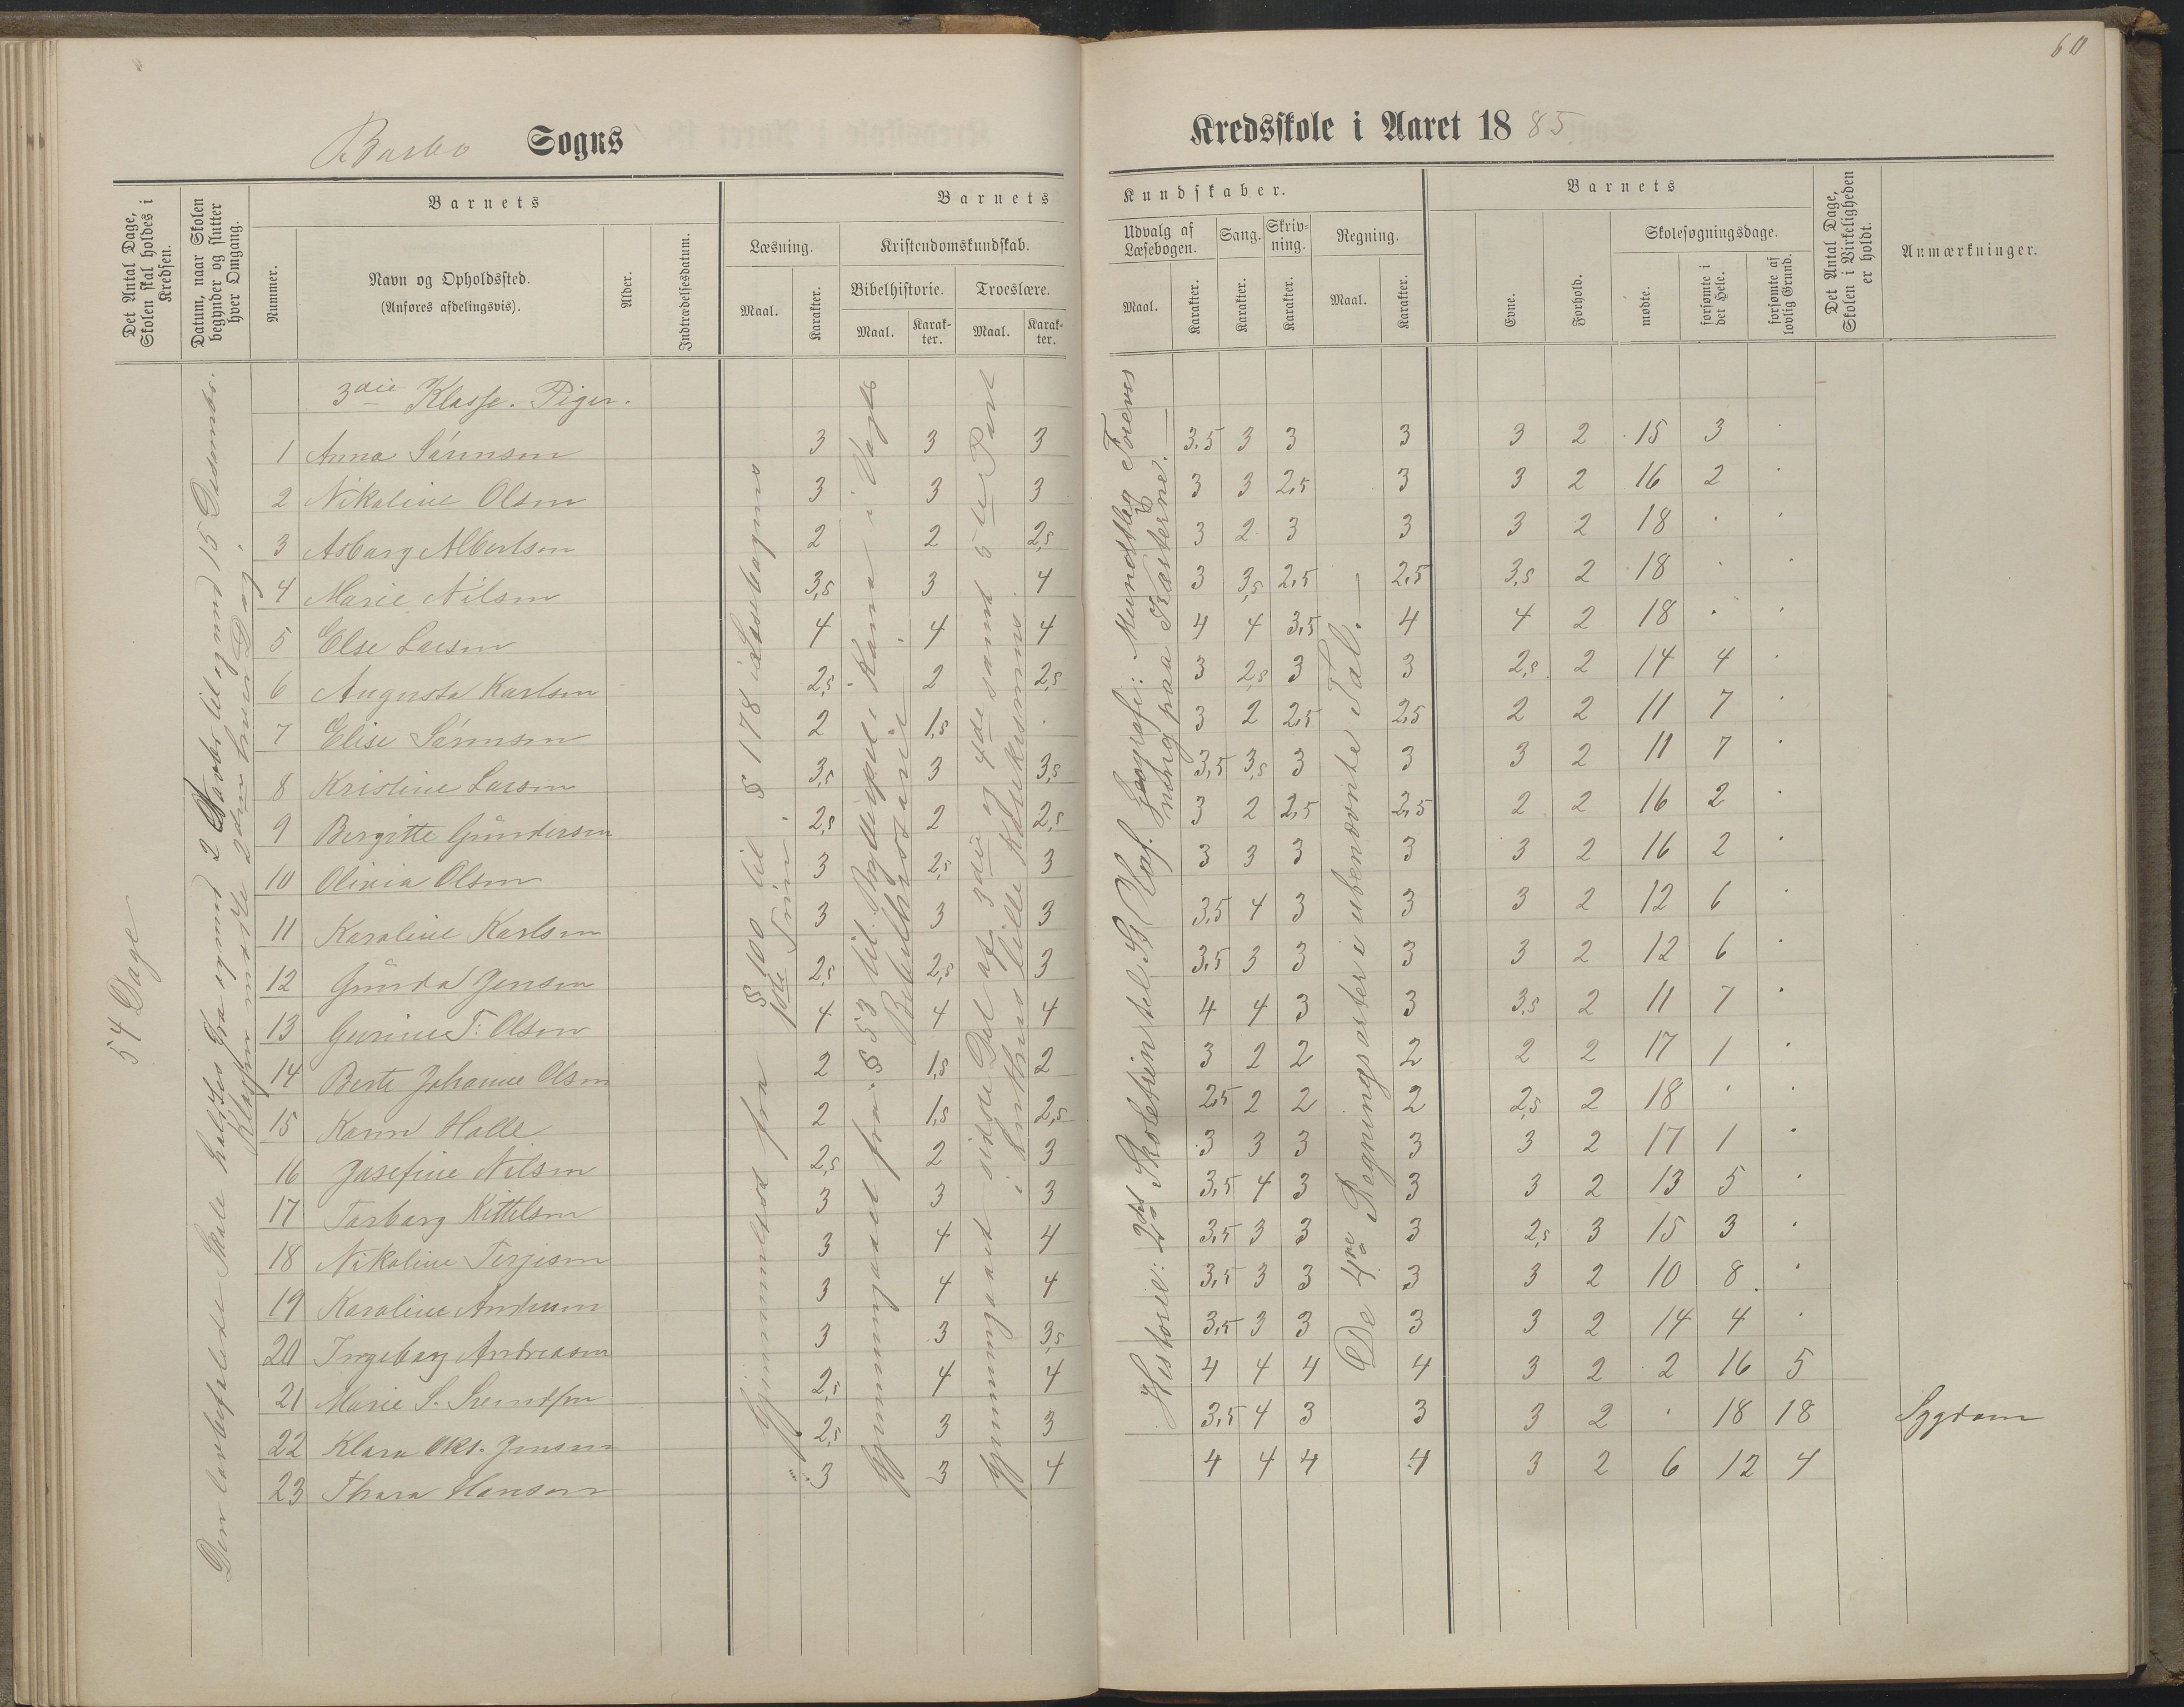 60
Barbo Sogns
Kredsskole i Aaret 1885
Det Antal Dage, Skolen skal holdes i Kredsen.
Datum, naar Skolen begynder og slutter hver Omgang.
Barnets
Nummer.
Navn og Opholdssted.
(Anføres afdelingsvis).
Alder.
Indtrædelsesdatum.
Barnets
Læsning.
Maal.
Karakter.
Kristendomskundskab.
Bibelhistorie.
Maal.
Karakter.
Troeslære.
Maal.
Karakter.
Kundskaber.
Udvalg af Læsebogen.
Maal.
Karakter.
Sang.
Karakter.
Skrivning.
Karakter.
Regning.
Maal.
Karakter.
Barnets
Evne.
Forhold.
Skolesøgningsdage.
mødte.
forsømte i det Hele.
forsømte af lovlig Grund.
Det Antal Dage, Skolen i Virkeligheden er holdt.
Anmærkninger.
54 Dage
Den lovbefalede Skole holdtes fra og med 2 Novbr til og med 15 Desember.
Klassen mødte 2den hver Dag.
Gjennemlæst fra § 100 til § 178 i Læsebogens
1ste Trin.
Gjennemgaaet fra § 53 til Bryllupet i Kana i Vogts
Bibelhistorie.
Gjennemgaaet sidste Del af 3die og 4de samt 5te Part
i Luthers lille Katekismus.
Historie: 2det Skoletrin til
Geografi: Mundtlig Øvelse
ning paa Kasterne.
De 4re Regningsarter i ubenævnte Tal.
3die Klasse. Piger.
1 Anna Sørensen 3 3 3 3.5 3 3 3 3 2 15 3 .
2 Nikoline Olsen 3 3 3 3 3 2,5 3 3 2 16 2 .
3 Asborg Albertsen 2 2 2,5 3 2 3 3 3 2 18 . .
4 Marie Nilsen 3,5 3 4 3 3,5 2,5 2,5 3,5 2 18 . .
5 Else Larsen 4 4 4 4 4 3,5 4 4 2 18 . .
6 Augusta Karlsen 2,5 2 2,5 3 2,5 3 3 2,5 2 14 4 .
7 Elise Sørensen 2 1,5 . 3 2 2,5 2,5 2 2 11 7 .
8 Kristine Larsen 3,5 3 3,5 3,5 3,5 3 3 3 2 11 7 .
9 Bergitte Gundersen 2,5 2 2,5 3 2 2,5 2,5 2 2 16 2 .
10 Olivia Olsen 3 2,5 3 3 3 3 3 3 2 16 2 .
11 Karoline Karlsen 3 3 3 3,5 4 3 3 3 2 12 6 .
12 Gunda Jensen 2,5 2,5 3 3,5 3 3 3 3 2 12 6 .
13 Gurine T: Olsen 4 4 4 4 4 3 3 3,5 2 11 7 .
14 Berte Johanne Olsen 2 1,5 2 3 2 2 2 2 2 17 1 .
15 Karen Halle 2 1,5 2,5 2,5 2 2 2 2,5 2 18 . .
16 Josefine Nilsen 2,5 2 3 3 3 3 3 3 2 17 1 .
17 Torborg Kittilsen 3 3 3 3,5 4 3 3 3 2 13 5 .
18 Nikoline Terjesen 3 4 4 3,5 3 3 3 2,5 3 15 3 .
19 Karoline Andersen 3 4 4 3,5 3 3 3 3 2 10 8 .
20 Ingeborg Andreasen 3 3 3,5 3,5 3 3 3 3 2 14 4 .
21 Marie S. 2,5 4 4 4 4 4 4 3 2 2 16 5
22 Klara Okt. Jensen 2,5 3 3 3,5 4 3 3 3 2 . 18 18 Sygdom
23 Thora Hansen 3 3 4 4 4 4 4 3 2 6 12 4